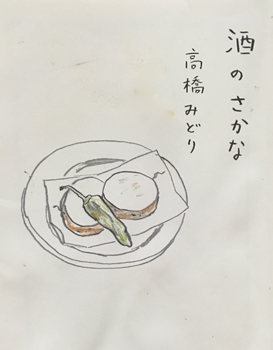 酒のさかな
高橋みどり